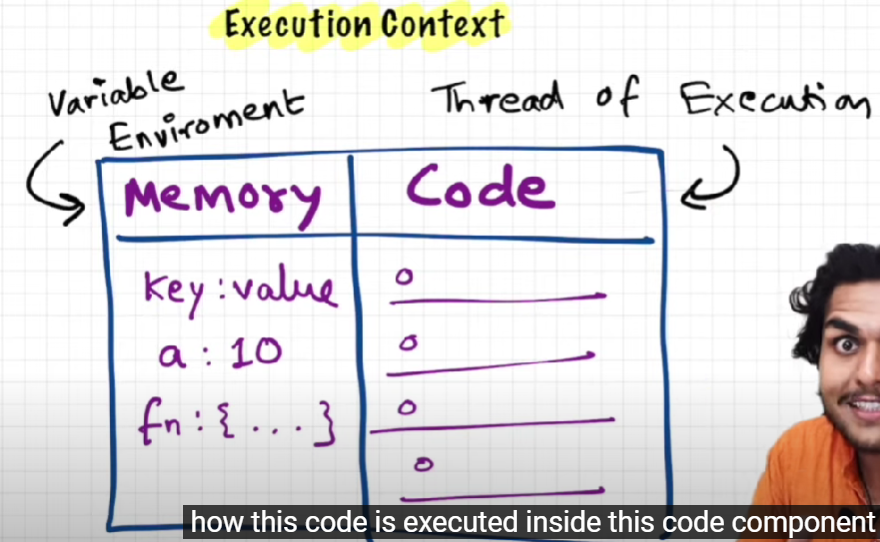 Execution Context
Variable
Enviroment
Thread of Execution
Memory
Code
key : value
a : 10
fn : { . . . }
how this code is executed inside this code component